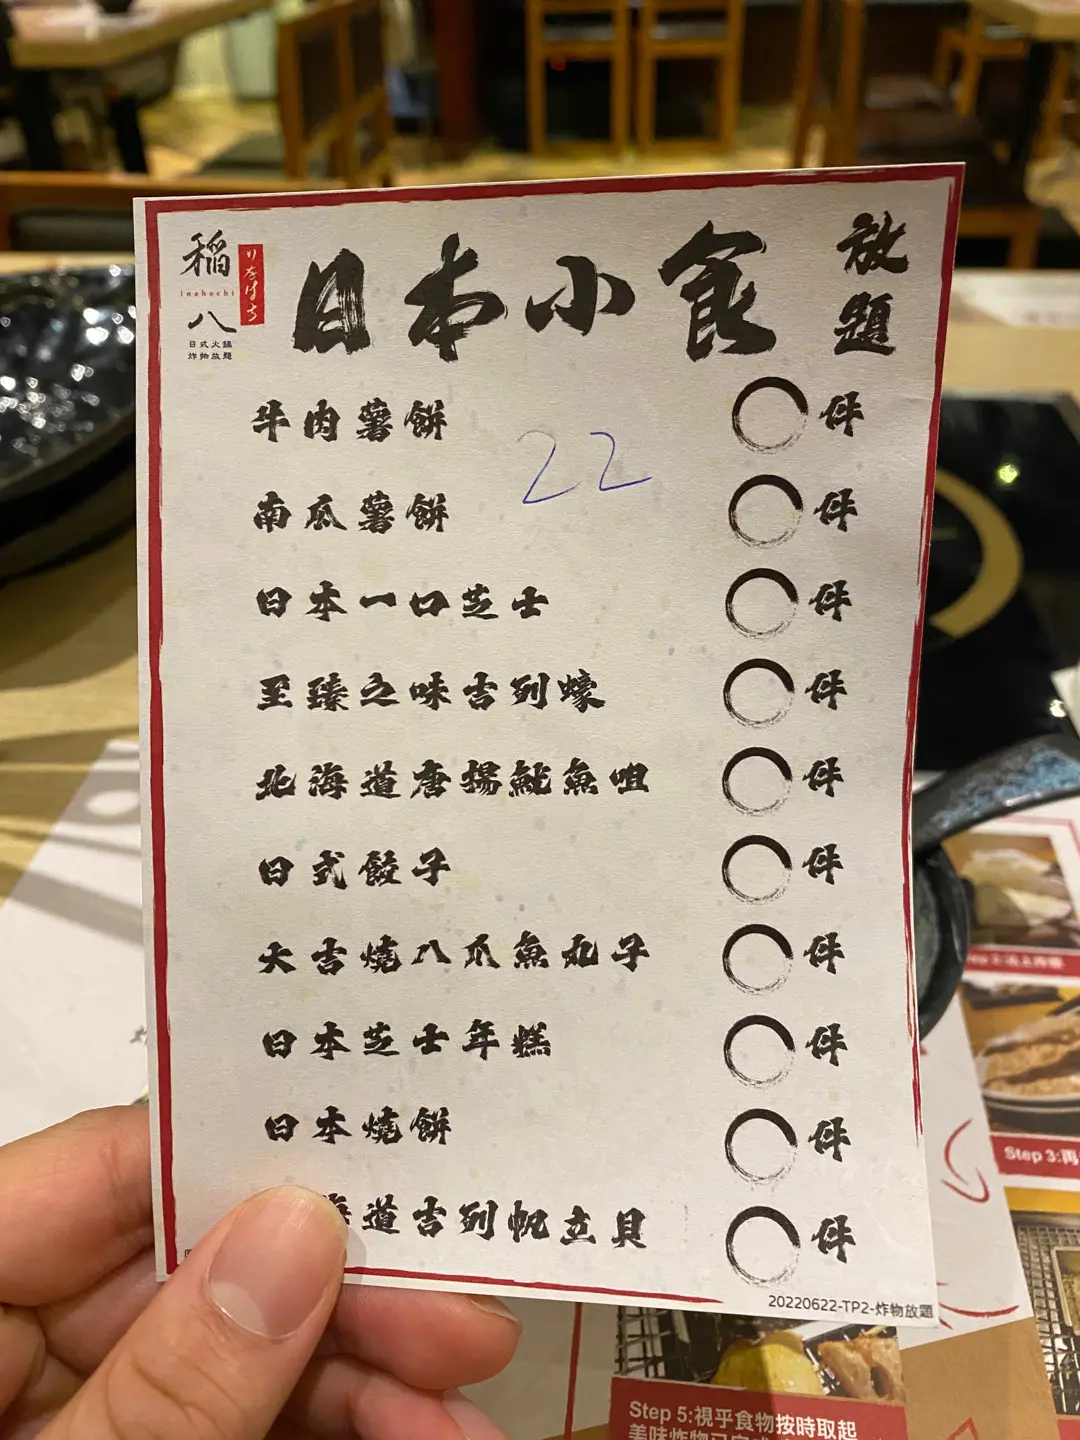 稲八
inahachi
りをはち
日式火鍋
炸物放題
日本小食
放題
牛肉薯餅 件
22
南瓜薯餅 件
日本一口芝士 件
至臻之味吉列蠔 件
北海道唐揚魷魚咀 件
日式餃子 件
大吉燒八爪魚丸子 件
日本芝士年糕 件
日本燒餅 件
海道吉列帆立貝 件
20220622-TP2-炸物放題
Step 3:再
Step 5:視乎食物按時取起
美味炸物已完成